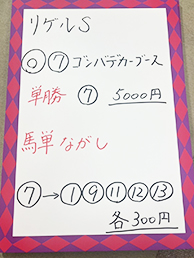 リゲルS
◎⑦ゴンバデカーブース
単勝 ⑦ 5000円
馬単ながし
⑦→①⑨⑪⑫⑬
各300円